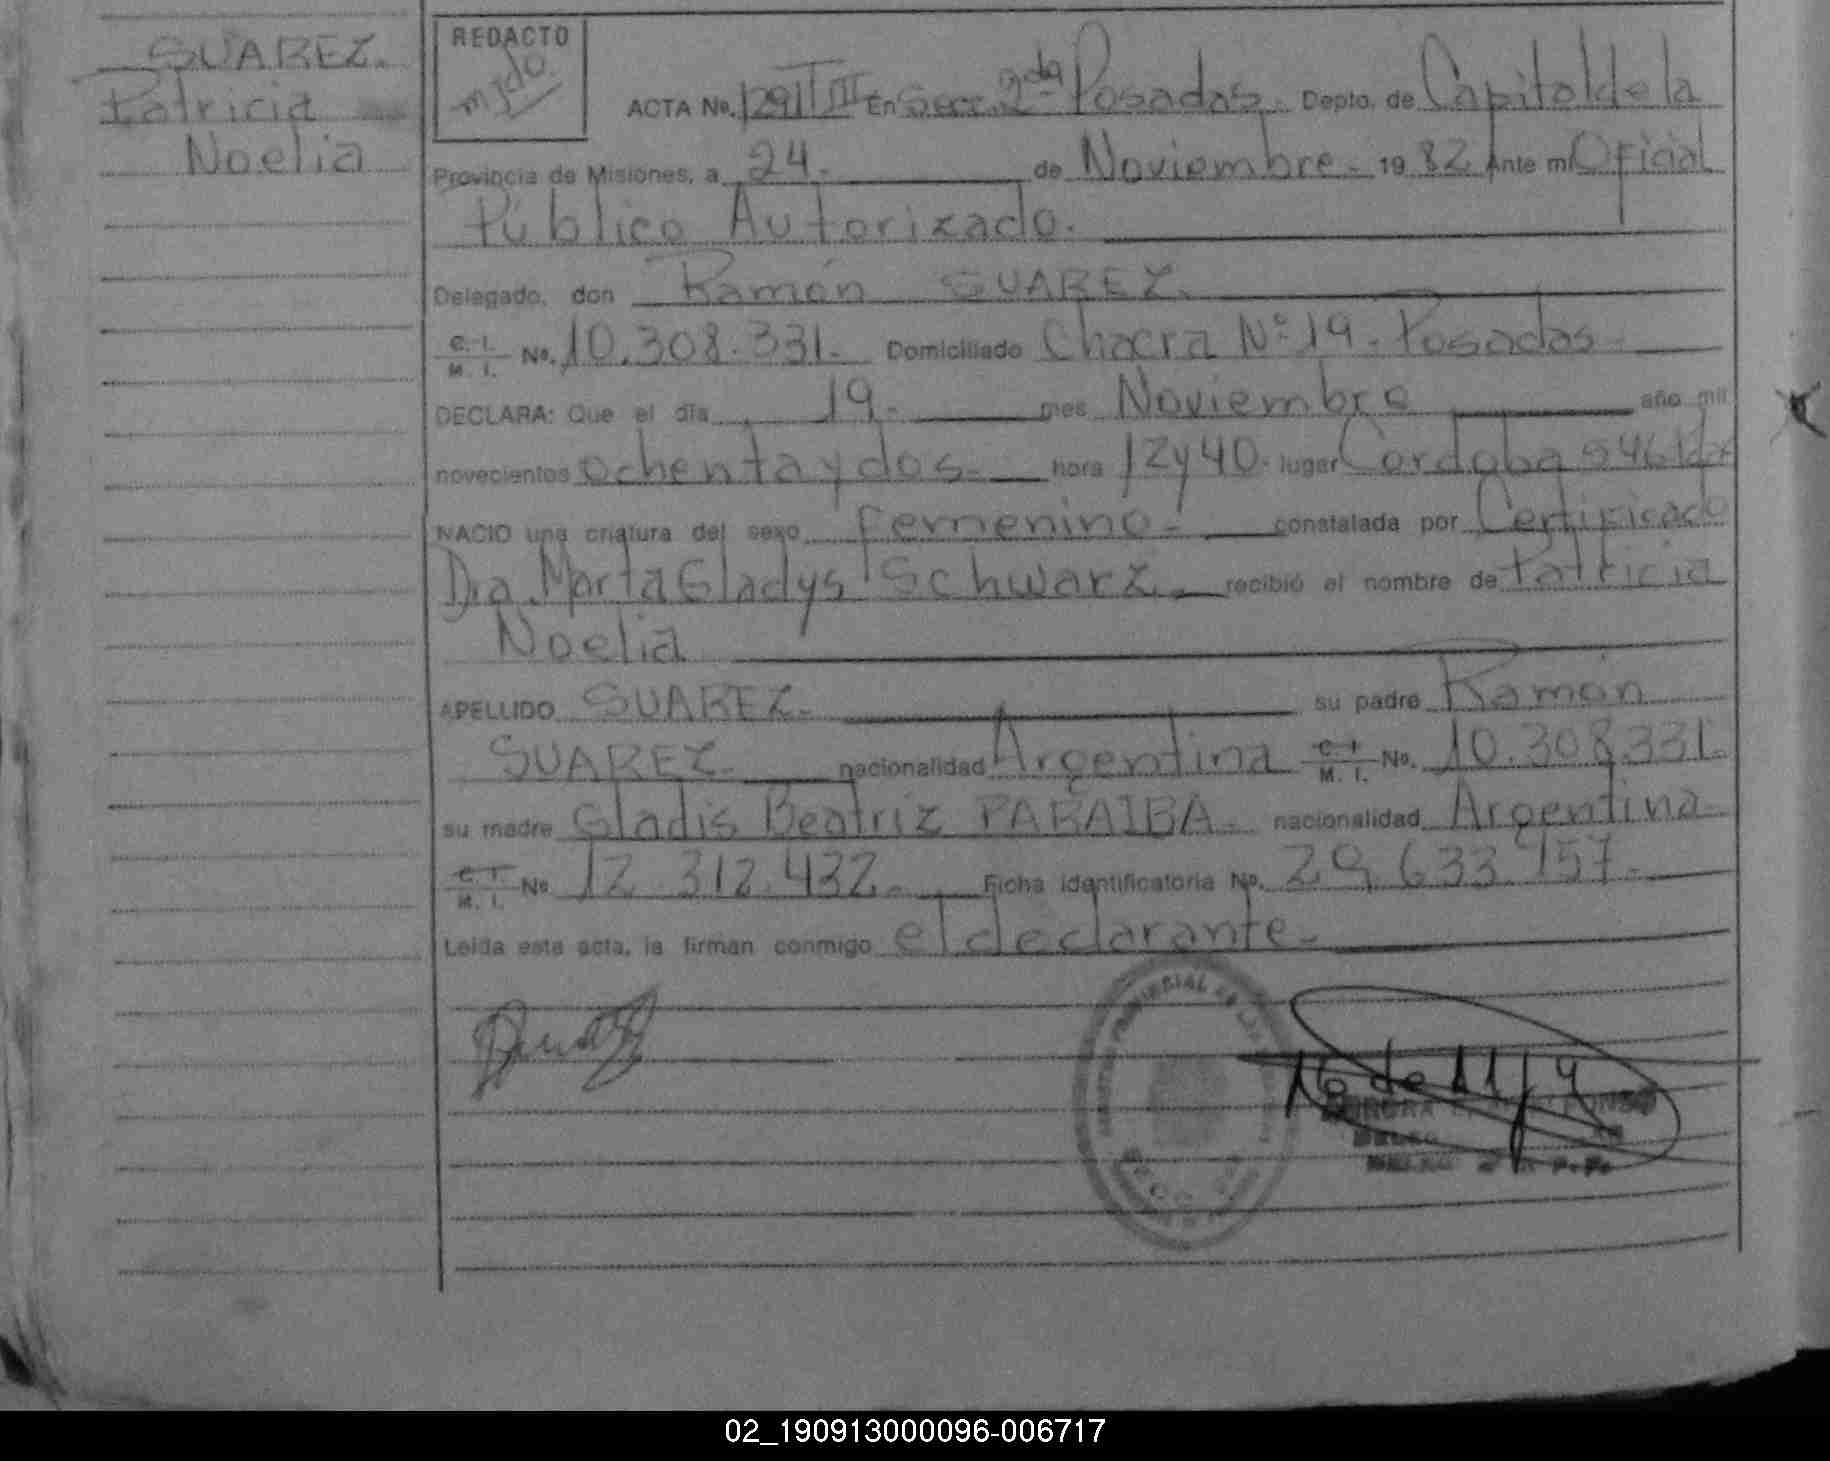 SUAREZ.
Patricia
Noelia
REDACTO
ACTA No. 1291 T III En Secc. 2da Posadas. Depto. de Capital de la
Provincia de Misiones, a 24. de Noviembre. 1982 Ante mi Oficial
Público Autorizado.
Delegado, don Ramón SUAREZ.
C. I. M. I. No. 10.308.331. Domiciliado Chacra Nº 19. Posadas.
DECLARA: Que el día 19. mes Noviembre año mil
novecientos ochenta y dos. hora 12 y 40. lugar Cordoba 546
NACIO una criatura del sexo femenino. constatada por Certificado
Dra. Marta Gladys Schwarz. recibió el nombre de Patricia
Noelia
APELLIDO SUAREZ. su padre Ramón
SUAREZ. nacionalidad Argentina C. I. M. I. No. 10.308.331.
su madre Gladis Beatriz PARAIBA. nacionalidad Argentina.
C. I. M. I. No 12.312.432. Ficha identificatoria No. 29.633.957.
Leída esta acta, la firman conmigo el declarante.
16 de 11
02_190913000096-006717